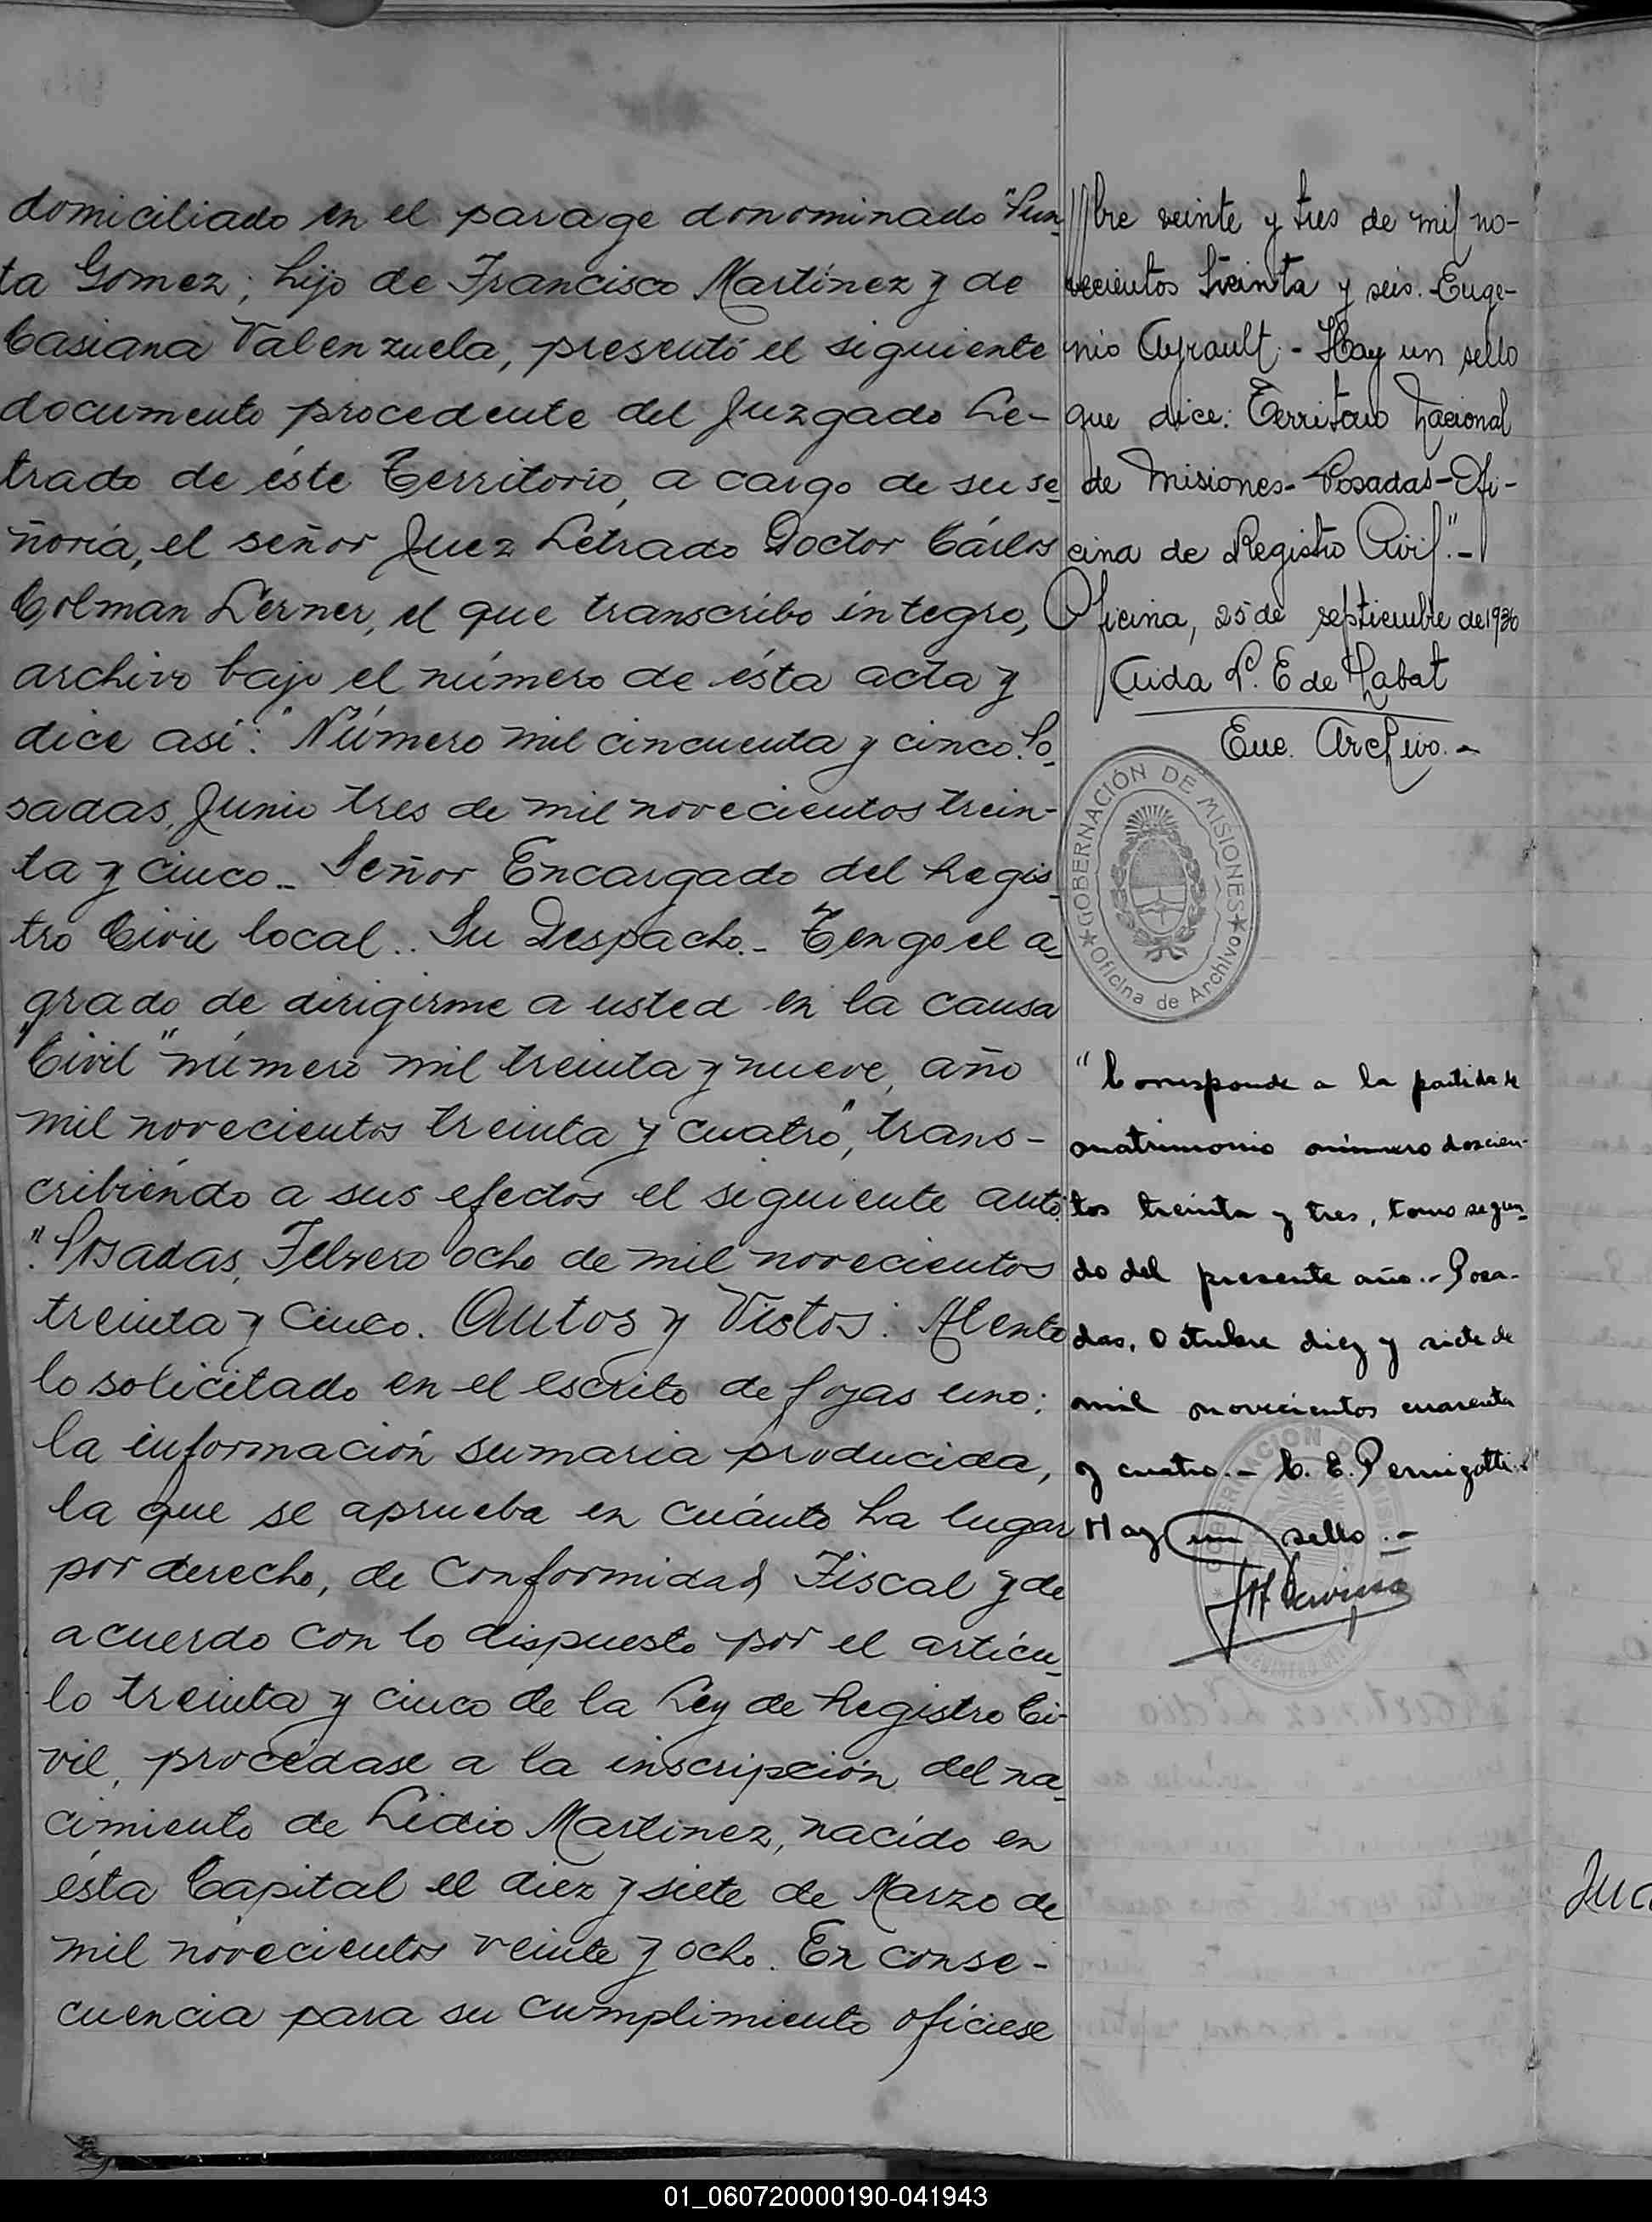 domiciliado en el parage donominado "Pun
ta Gomez; hijo de Francisco Martínez y de
Casiana Valenzuela, presentó el siguiente
documento procedente del Juzgado Le-
trado de éste Territorio, a cargo de su se
ñoría, el señor Juez Letrado Doctor Cárlos
Colman Lerner, el que transcribo integro,
archivo bajo el número de ésta acta y
dice así: "Número mil cincuenta y cinco. Po
sadas, Junio tres de mil novecientos trein-
ta y cinco_ Señor Encargado del Regis
tro Civil local.. Su Despacho._ Tengo el a
grado de dirigirme a usted en la causa
"Civil" número mil treinta y nueve, año
mil novecientos treinta y cuatro", trans-
cribiéndo a sus efectos el siguiente auto.
."Posadas, Febrero ocho de mil novecientos
treinta y cinco. Autos y Vistos: Atento
lo solicitado en el escrito de fojas uno;
la información sumaria producida,
la que se aprueba en cuánto ha lugar
por derecho, de conformidad Fiscal y de
acuerdo con lo dispuesto por el artícu
lo treinta y cinco de la Ley de Registro Ci-
vil, procédase a la inscripción del na
cimiento de Lidio Martinez, nacido en
ésta Capital el diez y siete de Marzo de
mil novecientos veinte y ocho. En conse-
cuencia para su cumplimiento ofíciese
bre veinte y tres de mil no-
vecientos treinta y seis. Euge-
nio Ayrault.- Hay un sello
que dice: Territorio Nacional
de Misiones- Posadas- Ofi-
cina de Registro Civil".-
Oficina, 25 de septiembre de 1936
Aida P. E de Labat
Enc. Archivo.-
GOBERNACIÓN DE MISIONES
Oficina de Archivo
"Corresponde a la partida de
matrimonio número doscien-
tos treinta y tres, tomo segun
do del presente año.- Posa-
das, Octubre diez y siete de
mil novecientos cuarenta
y cuatro.- C. E. Pernigotti."
Hay un sello.-
Juc
01_060720000190-041943